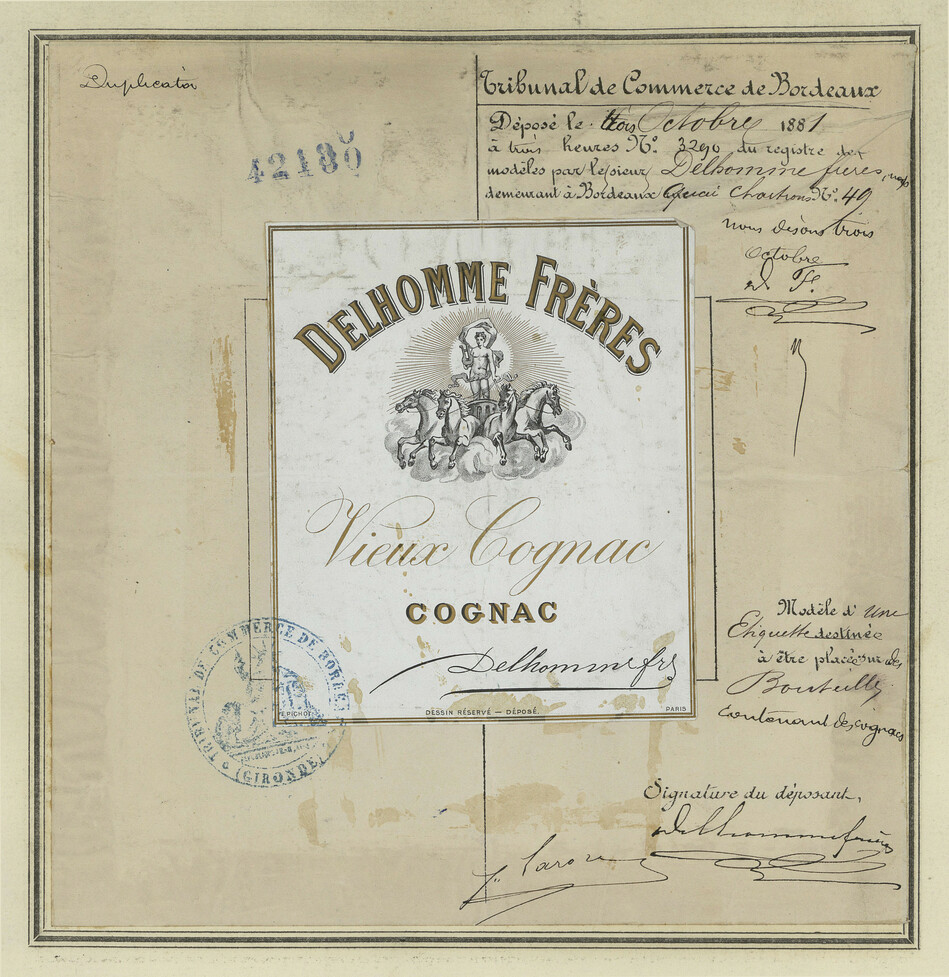 Duplicata
42180
Tribunal de Commerce de Bordeaux
Déposé le trois Octobre 1881
à trois heures N°. 3290 du registre des
modèles par le sieur Delhomme frères,
demeurant à Bordeaux Quai Chartrons N°. 49
nous disons trois
Octobre
D. F.
DELHOMME FRÈRES
Vieux Cognac
COGNAC
Delhomme frs
DESSIN RÉSERVÉ — DÉPOSÉ.
PARIS
TRIBUNAL DE COMMERCE DE BORDEAUX
(GIRONDE)
Modèle d'une
Etiquette destinée
à être placée sur des
Bouteilles
contenant des cognacs
Signature du déposant,
Delhomme frères